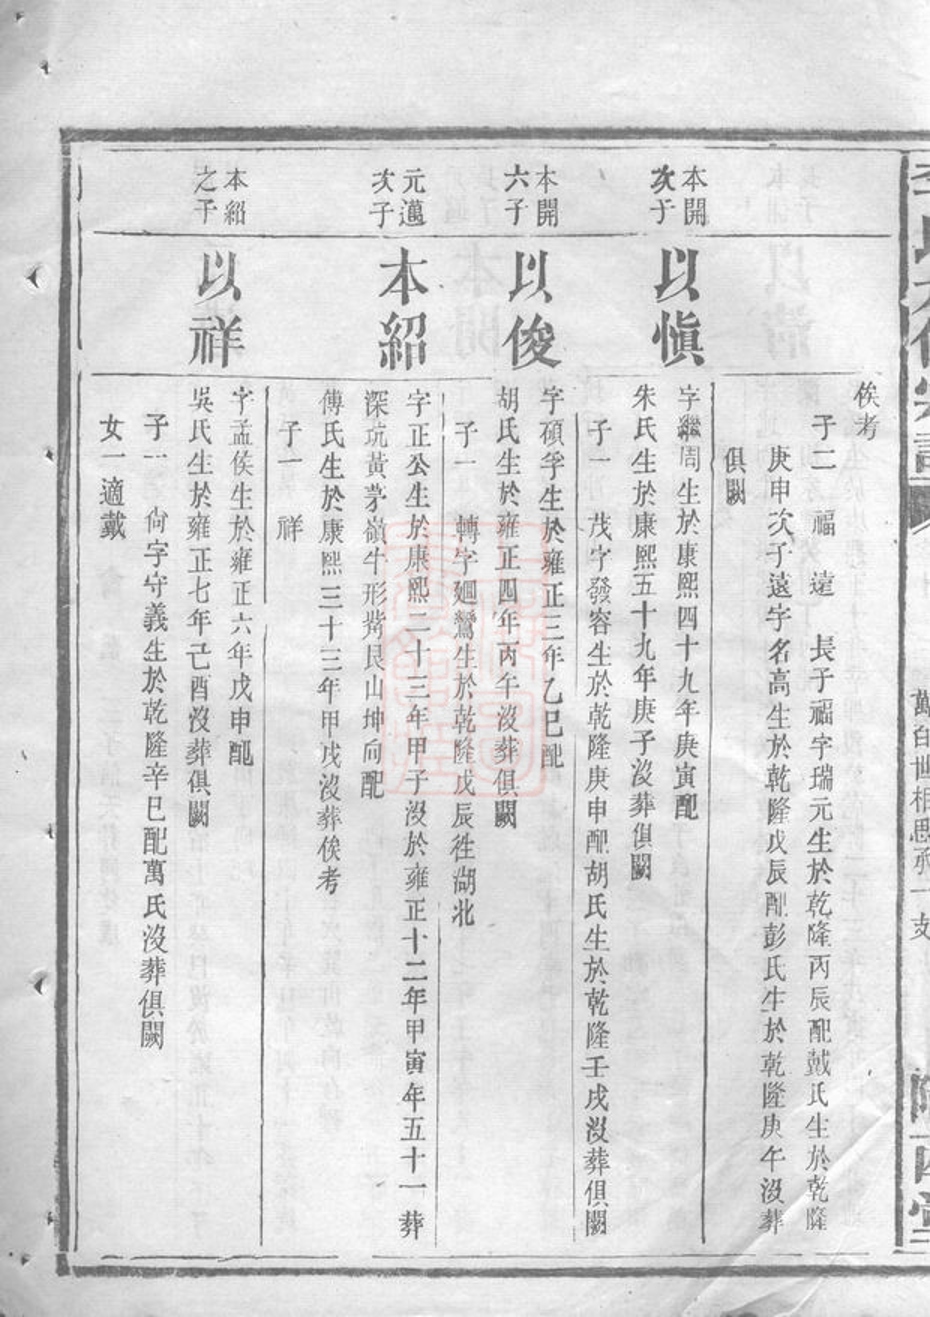 俟考
子二　福　達　長子福字瑞元生於乾隆丙辰配戴氏生於乾隆
庚申次子遠字名高生於乾隆戊辰配彭氏生於乾隆庚午沒葬
俱闕
本開
次子
以慎
字繼周生於康熙四十九年庚寅配
朱氏生於康熙五十九年庚子沒葬俱闕
子一　茂字發容生於乾隆庚申配胡氏生於乾隆壬戌沒葬俱闕
本開
六子
以俊
字碩孚生於雍正三年乙巳配
胡氏生於雍正四年丙午沒葬俱闕
子一　轉字廻鸞生於乾隆戊辰徃湖北
元邁
次子
本紹
字正公生於康熙二十三年甲子沒於雍正十二年甲寅年五十一葬
深坑黃茅嶺牛形觜艮山坤向配
傅氏生於康熙三十三年甲戌沒葬俟考
子一　祥
本紹
之子
以祥
字孟侯生於雍正六年戊申配
吳氏生於雍正七年己酉沒葬俱闕
子一　尙字守義生於乾隆辛巳配萬氏沒葬俱闕
女一適戴